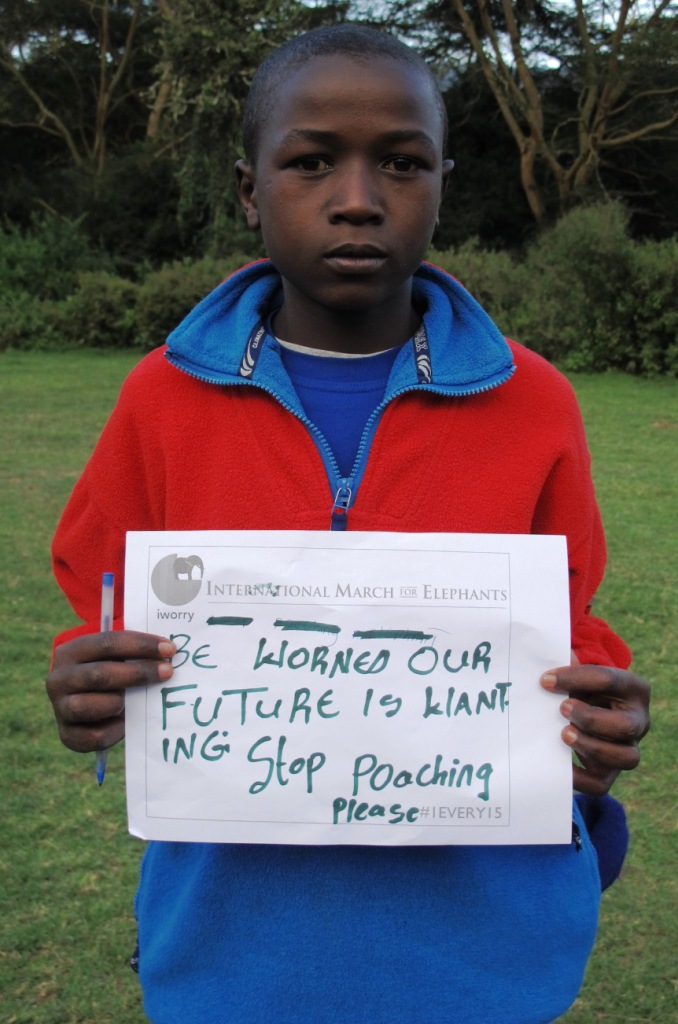 INTERNATIONAL MARCH FOR ELEPHANTS
iworry
BE WORNED OUR
FUTURE IS WANT
ING Stop Poaching
Please #1EVERY15